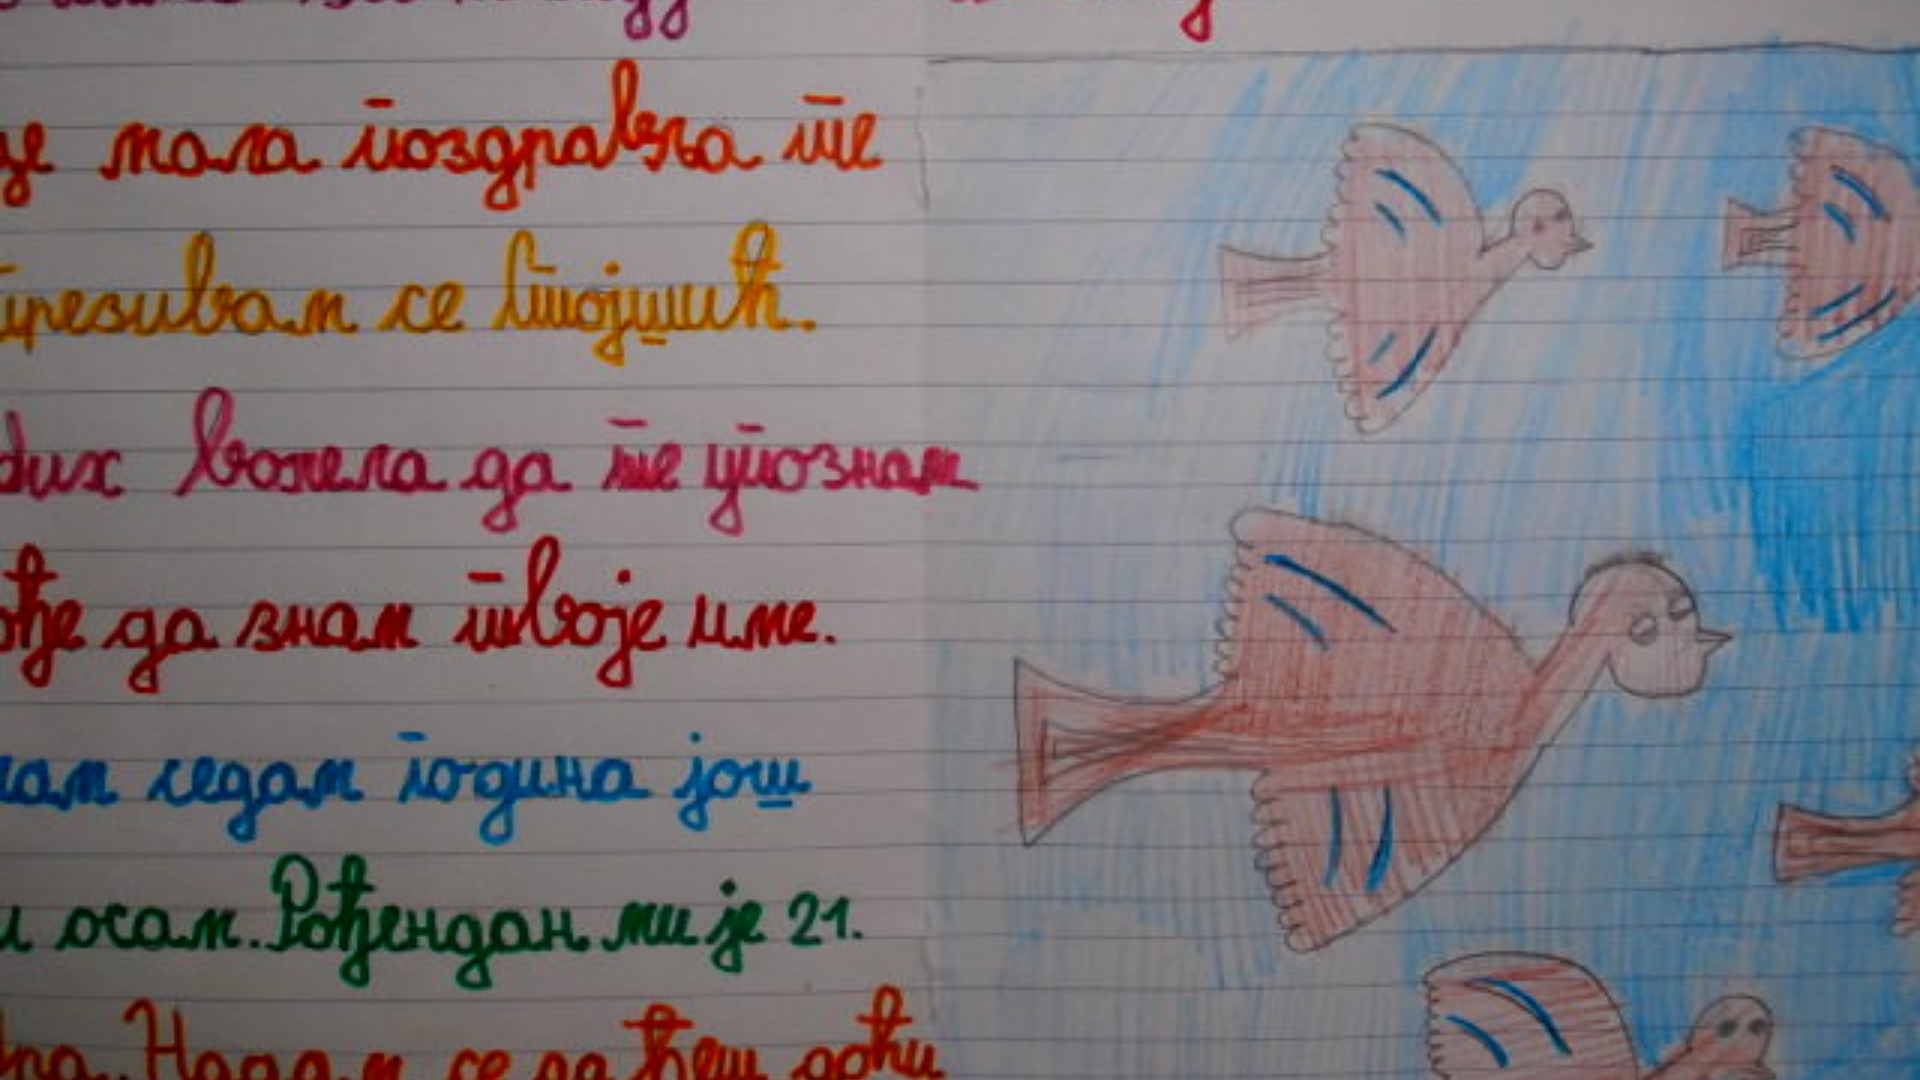 мала поздравља те
презивам се Стојшић.
бих волела да те упознам
да знам твоје име.
седам година још
и осам. Рођендан ми је 21.
Надам се да ћеш доћи